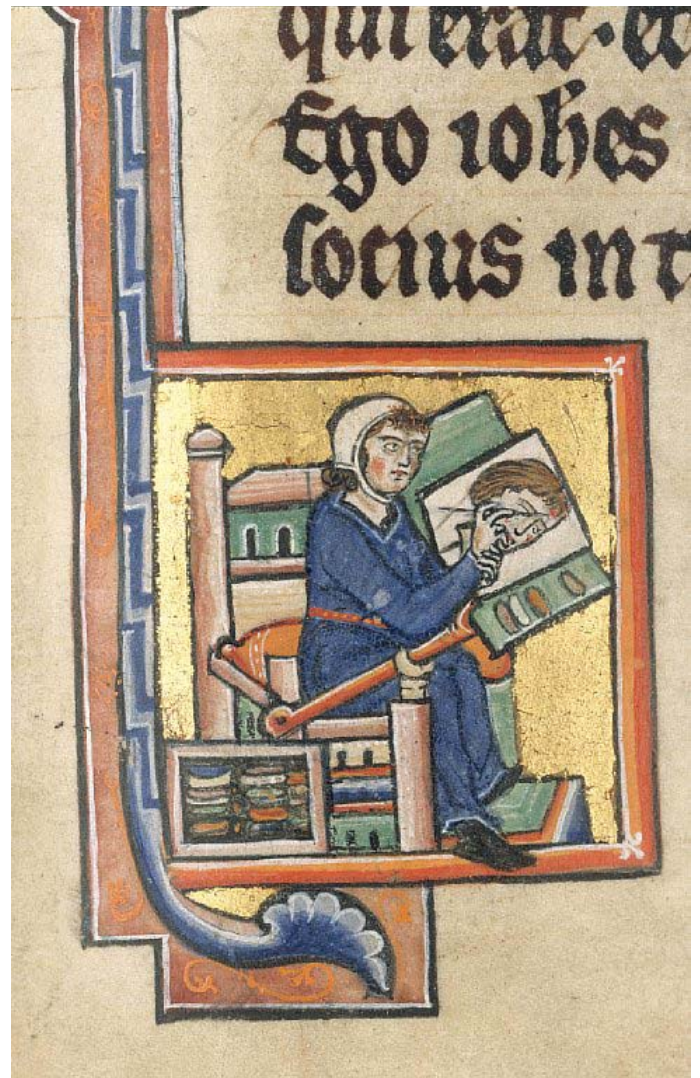 qui erat · et
Ego ioh̅es
socius in t